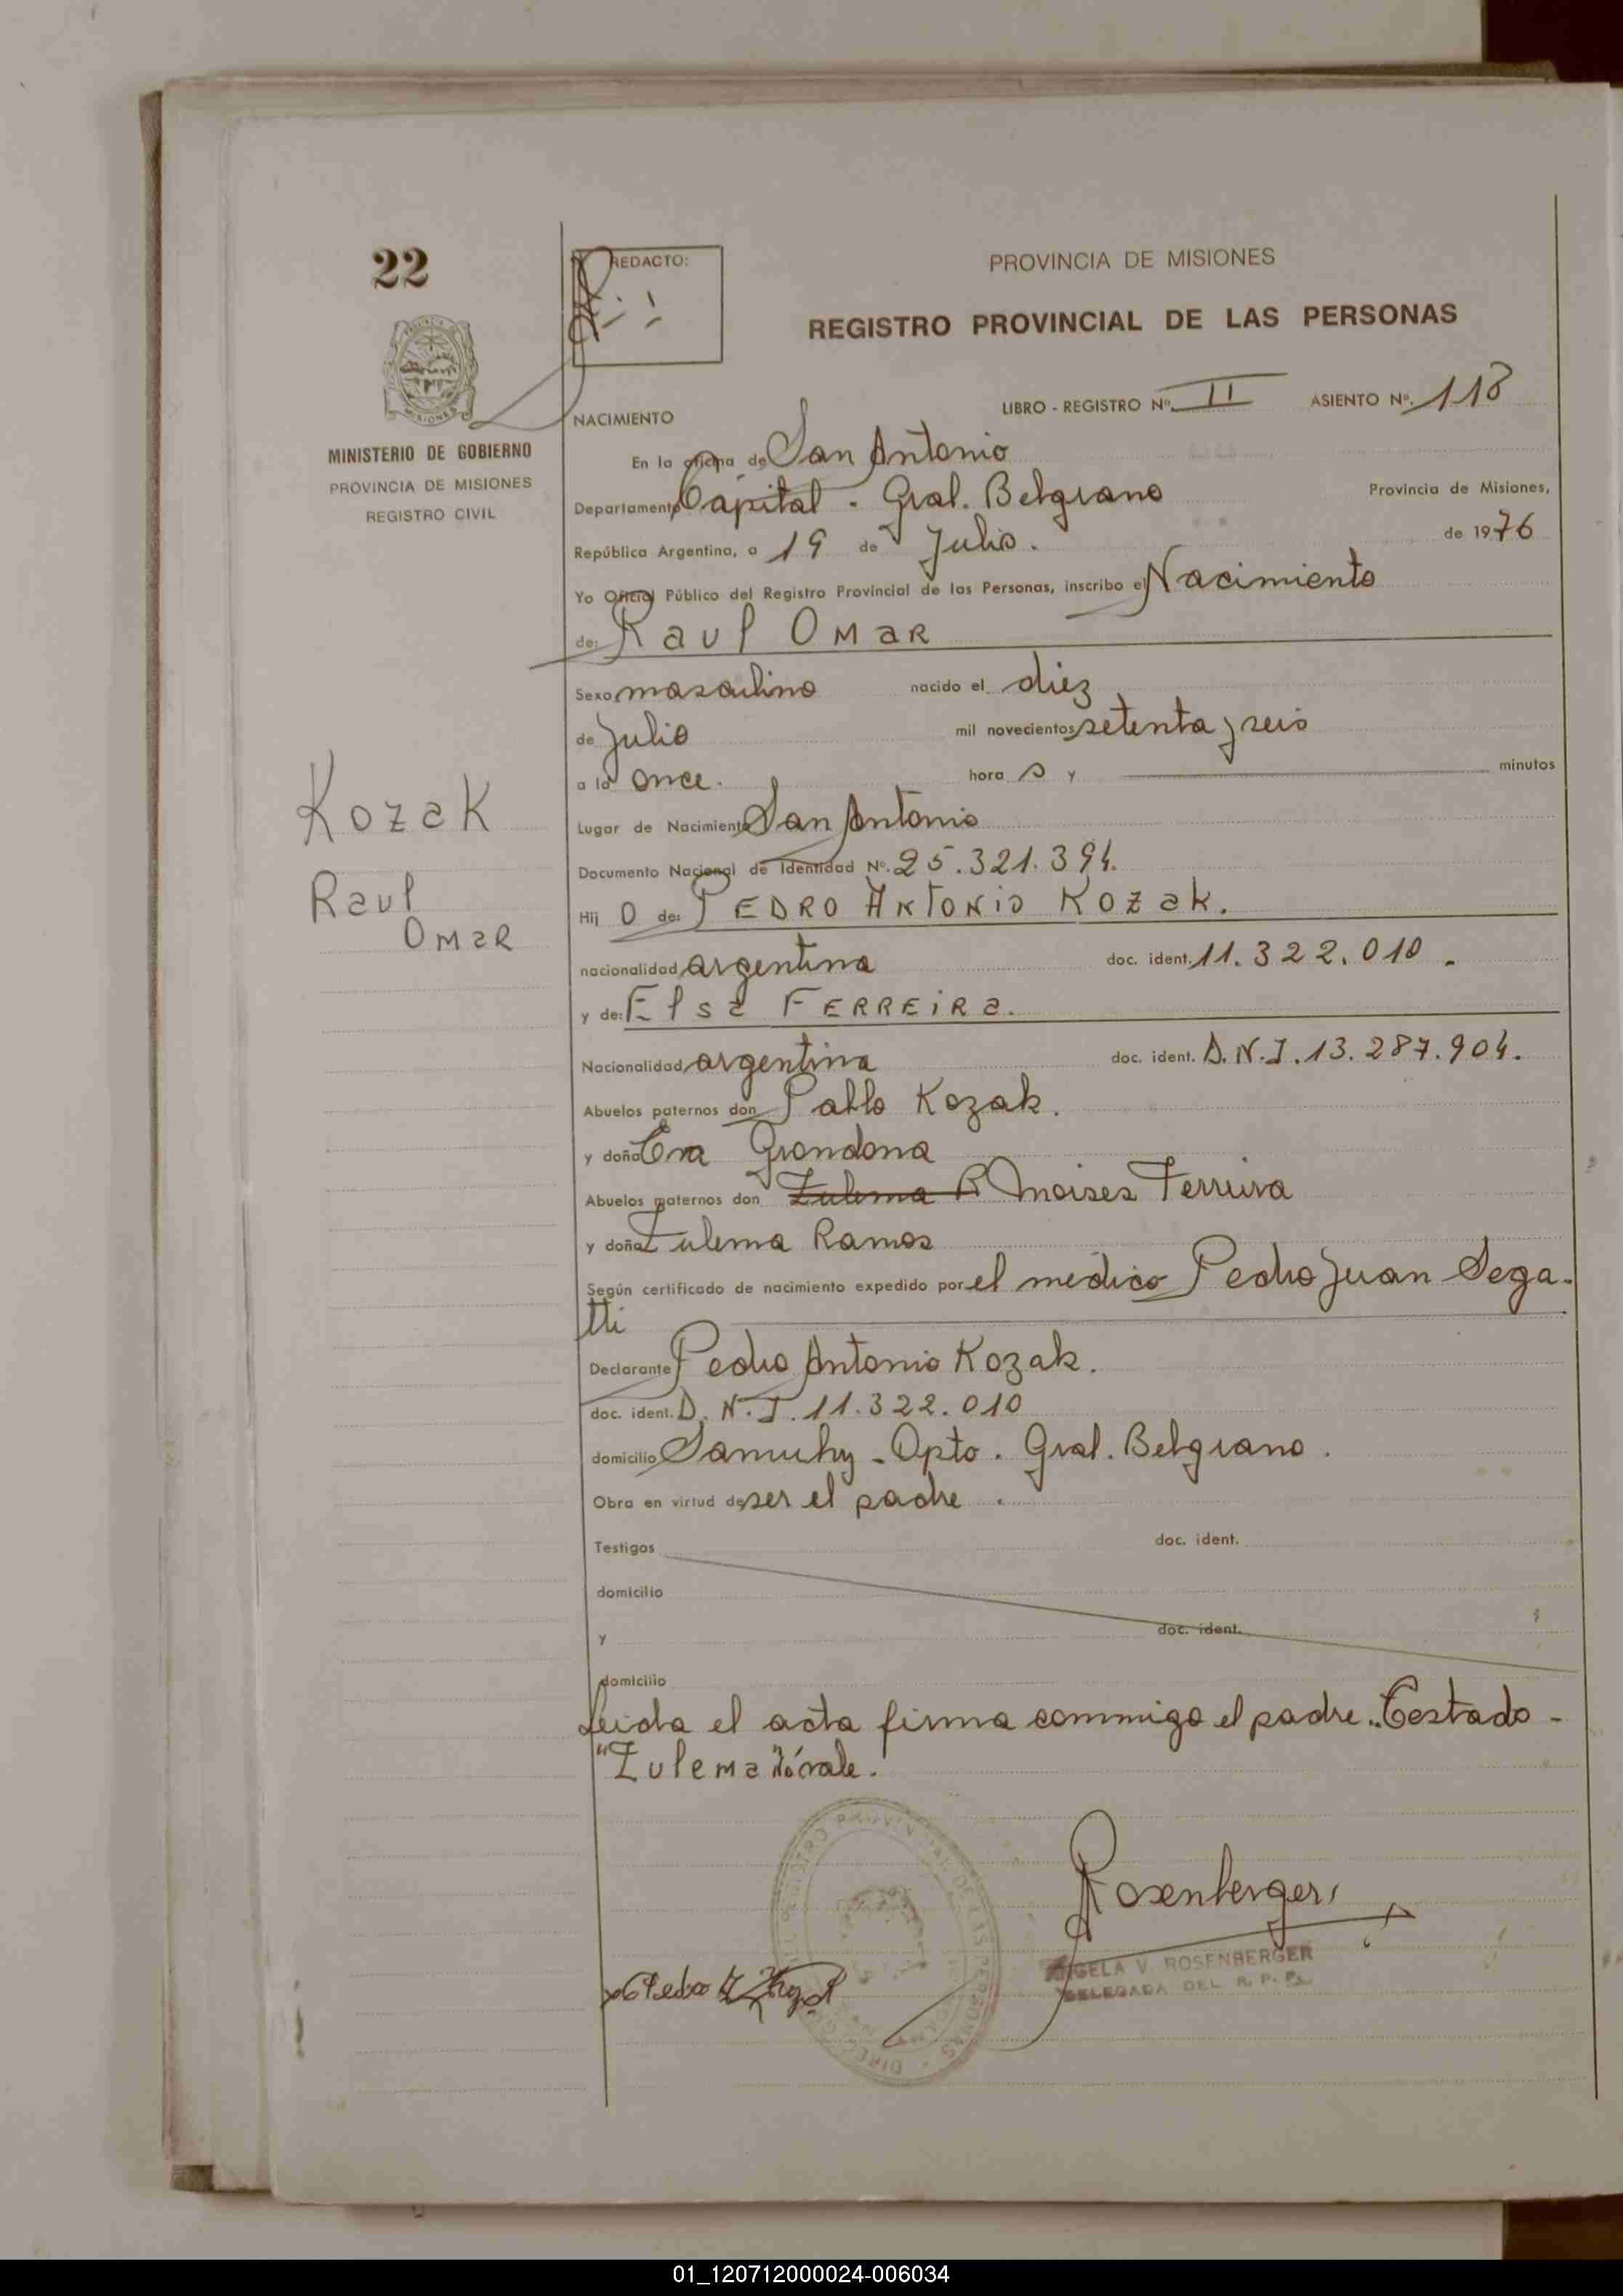 22
REDACTO:
PROVINCIA DE MISIONES
REGISTRO PROVINCIAL DE LAS PERSONAS
LIBRO - REGISTRO Nº II ASIENTO Nº. 118
NACIMIENTO
MINISTERIO DE GOBIERNO
PROVINCIA DE MISIONES
REGISTRO CIVIL
En la oficina de San Antonio
Departamento Capital - Gral. Belgrano Provincia de Misiones,
República Argentina, a 19 de Julio. de 1976
Yo Oficial Público del Registro Provincial de las Personas, inscribo el Nacimiento
de: Raul Omar
Sexo masculino nacido el diez
de Julio mil novecientos setenta y seis
a la once. hora s y minutos
Kozak
Raul
Omar
Lugar de Nacimiento San Antonio
Documento Nacional de Identidad Nº. 25.321.394.
Hij o de: PEDRO ANTONIO KOZAK.
nacionalidad argentina doc. ident. 11.322.010.
y de: Elsa FERREIRA.
Nacionalidad argentina doc. ident. D.N.I. 13.287.904.
Abuelos paternos don Pablo Kozak.
y doña Eva Grondona
Abuelos maternos don Zulema R Moises Ferreira
y doña Zulema Ramos
Según certificado de nacimiento expedido por el medico Pedro Juan Sega-
tti
Declarante Pedro Antonio Kozak.
doc. ident. D.N.I. 11.322.010
domicilio Samuhy - Dpto. Gral. Belgrano.
Obra en virtud de ser el padre.
Testigos doc. ident.
domicilio
y doc. ident.
domicilio
Leida el acta firma conmigo el padre. Testado -
"Zulema" no vale.
Rosenberger
ANGELA V. ROSENBERGER
DELEGADA DEL R. P. P.
Pedro
01_120712000024-006034